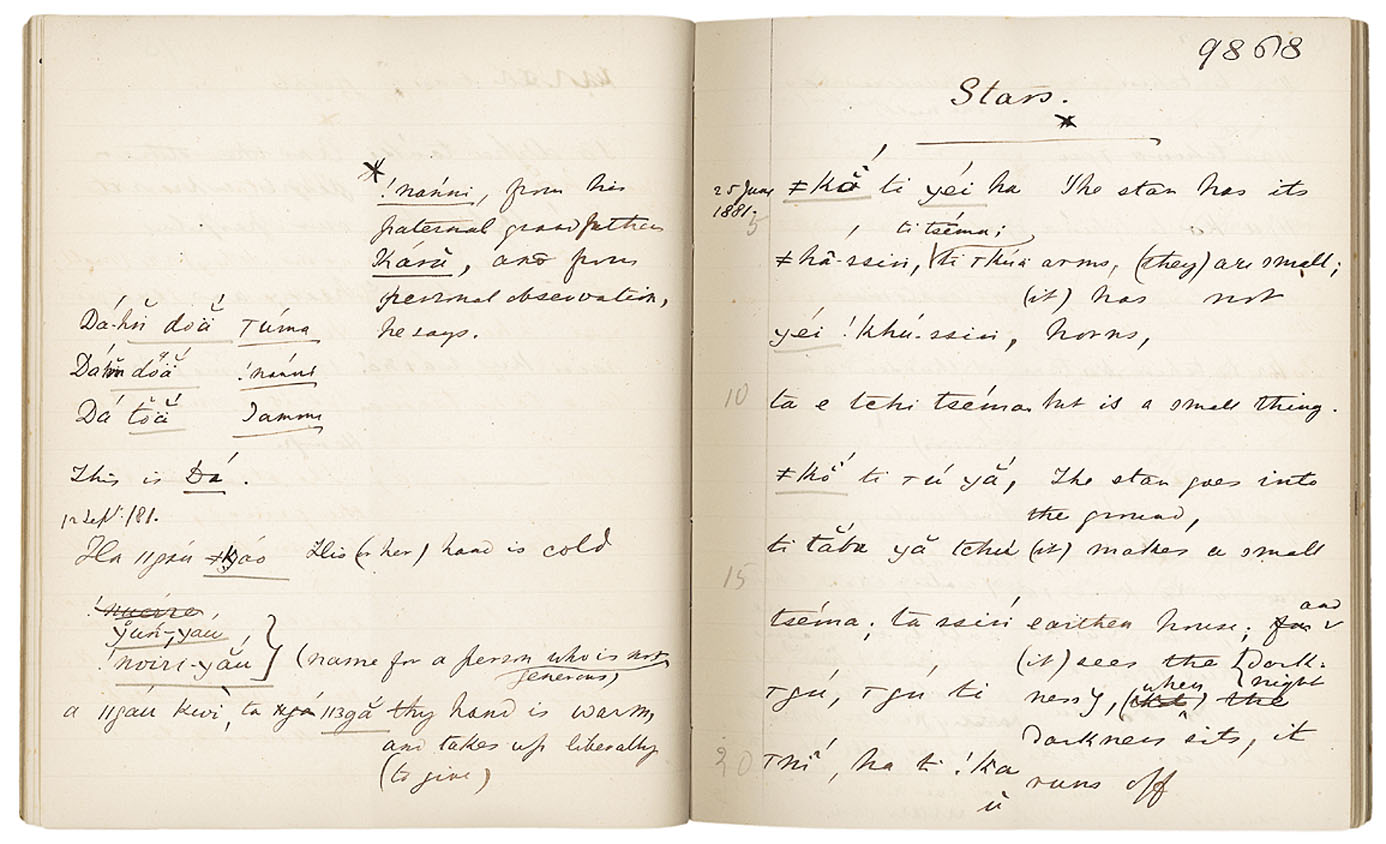 * !nańni, from his
paternal grandfather
Kárŭ, and from
personal observation,
he says.
Dá-hŭ döä́ Túma
döä̆ !nanni
Dá tŏä̆ Tamme
This is Dá.
12 Sept. /81.
Ha ǁgáú His (or her) hand is cold
!noiri-yắu } (name for a person who is not
generous)
a ǁgáu kwi, ta thy hand is warm,
and takes up liberally
(to give)
9868
Stars.
*
25 June
1881.
ti yéi ha The star has its
5
ti tséma;
ǂhâ-ssin, arms, (they) are small;
(it) has not
yéi !khú-ssin, horns,
10
ta e tchi tséma. but is a small thing.
ǂkắ ti тú yắ, The star goes into
the ground,
ti tắba yắ tchú (it) makes a small
15
tséma; ta ssiń earthen house; and
(it) sees the { Dark-
тgú, тgú ti ness }, (when) the night
Darkness sits, it
20
тni', ha ti !ka runs off
ŭ